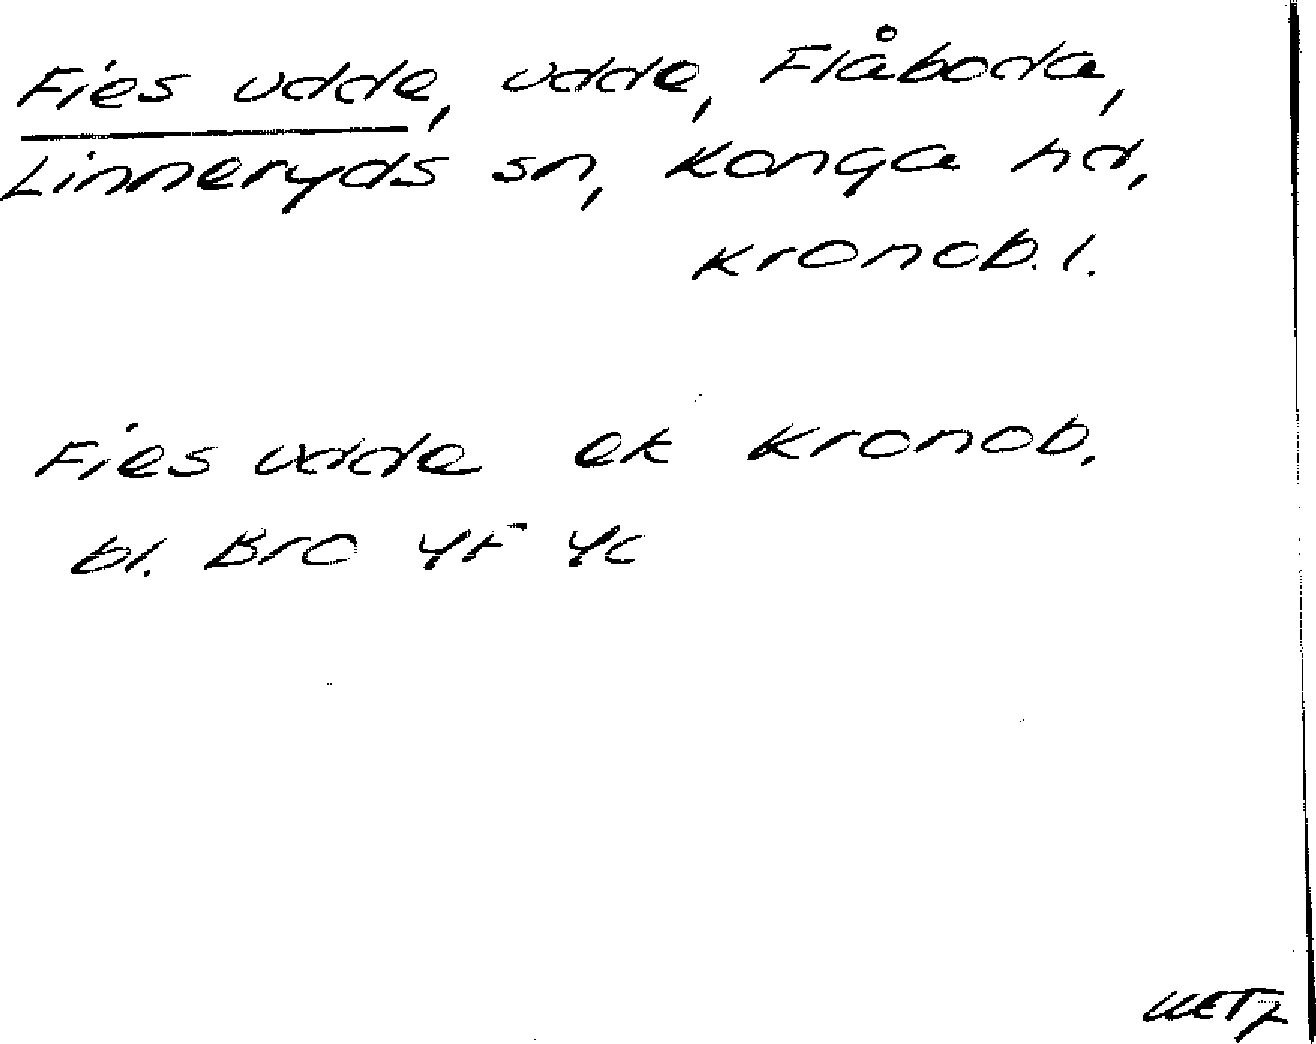 Fies udde, udde, Flåboda,
Linneryds sn, Konga hd,
Kronob. l.
Fies udde ek Kronob.
bl. Bro 4F 4c